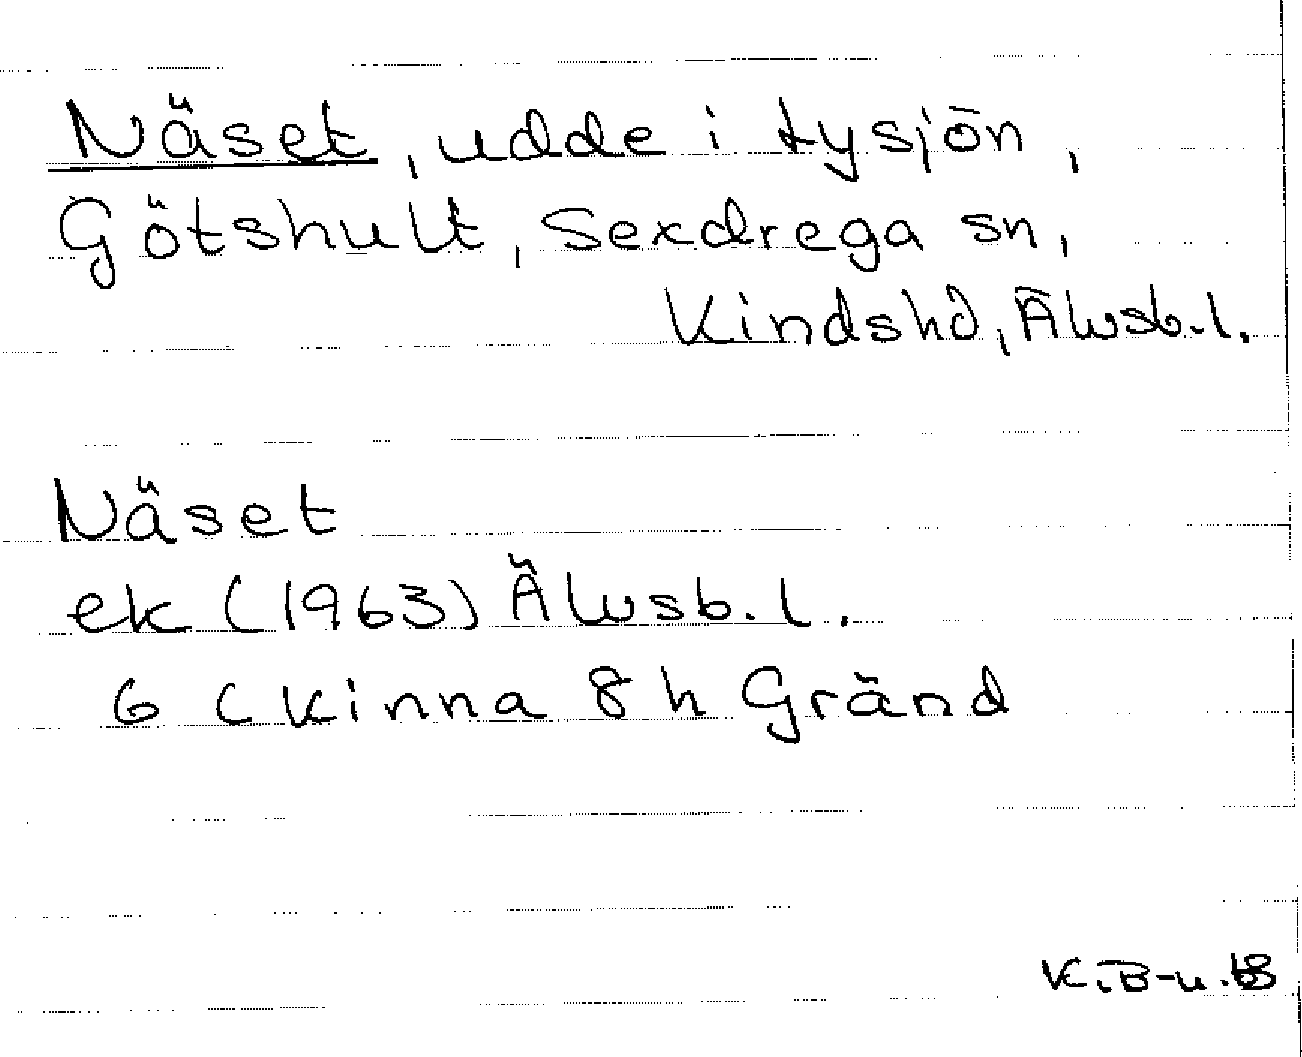 Näset, udde i tysjön,
Götshult, Sexdrega sn,
Kindshd, Älvsb.l.
Näset
ek (1963) Älvsb.l.
6 C Kinna 8 h Gränd
K.B-u.